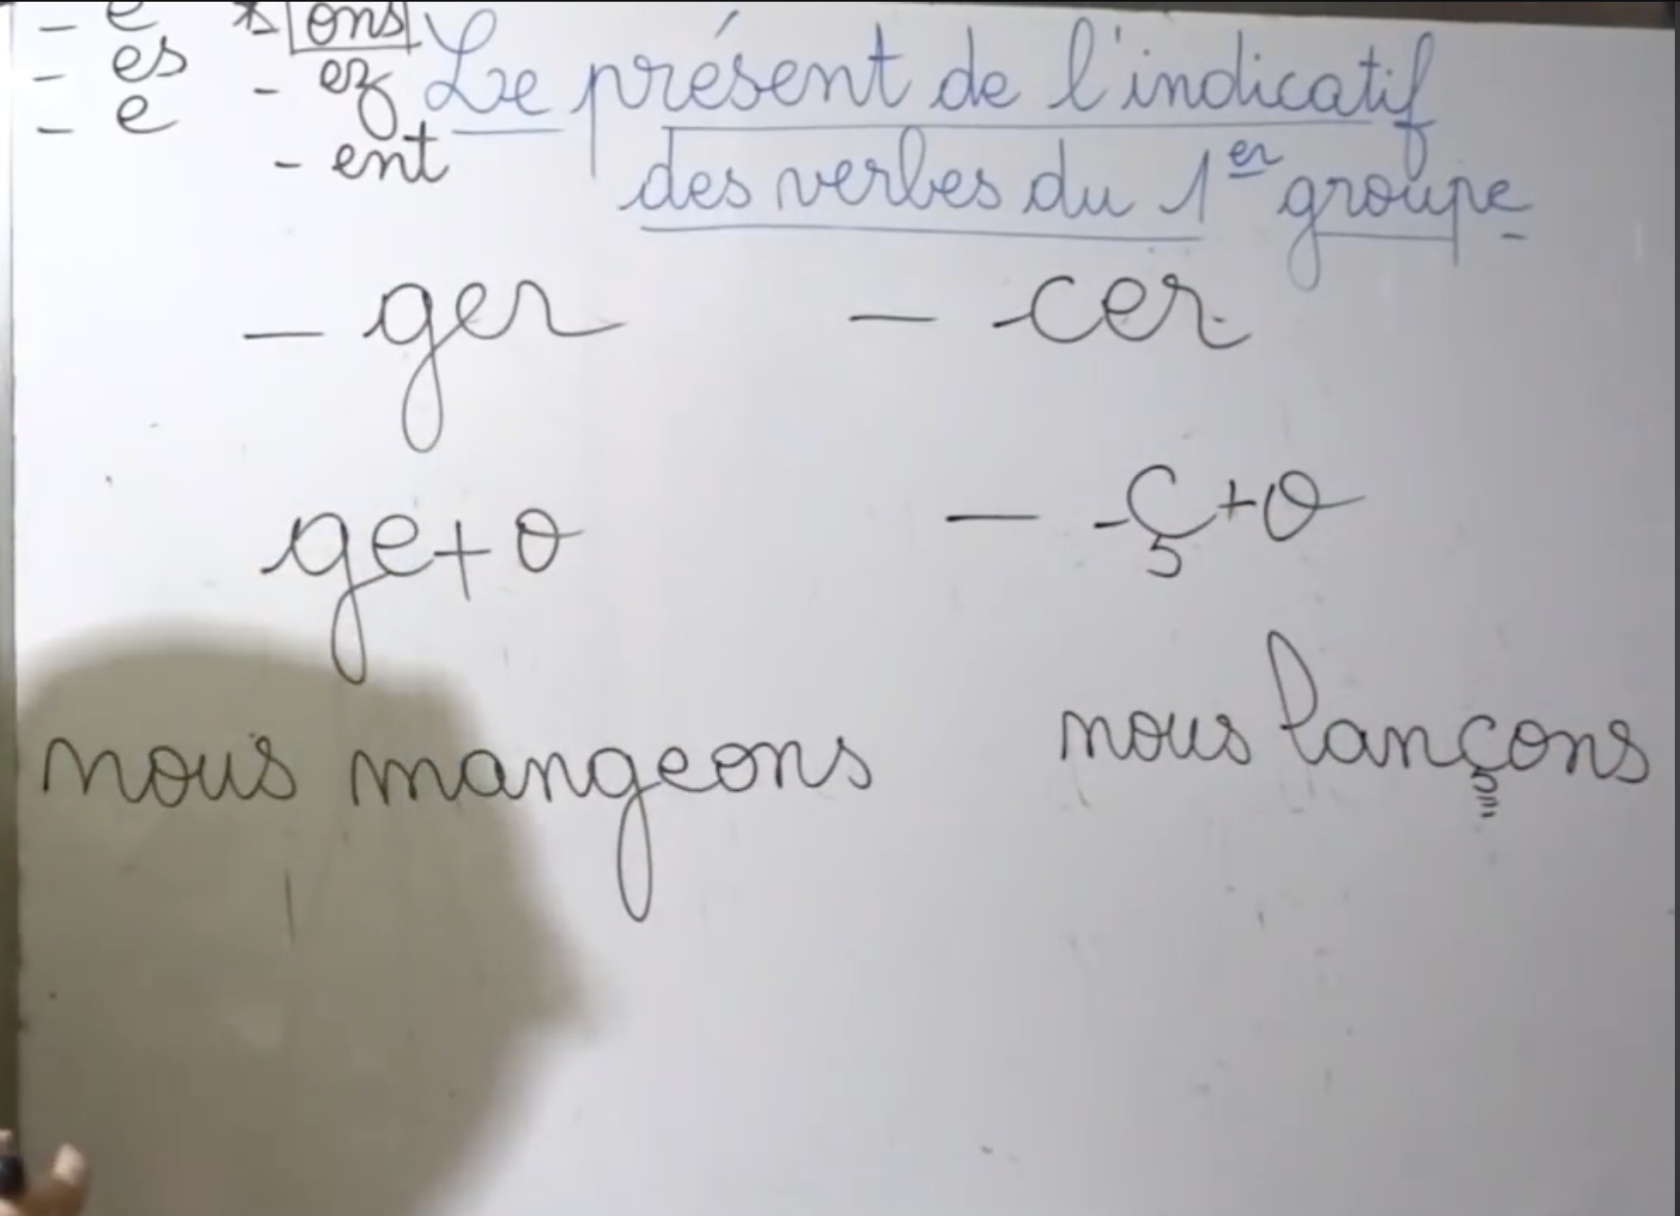 - e * - ons
- es - ez
- e - ent
Le présent de l'indicatif
des verbes du 1er groupe
- ger - -cer
ge+o - -ç+o
nous mangeons nous lançons